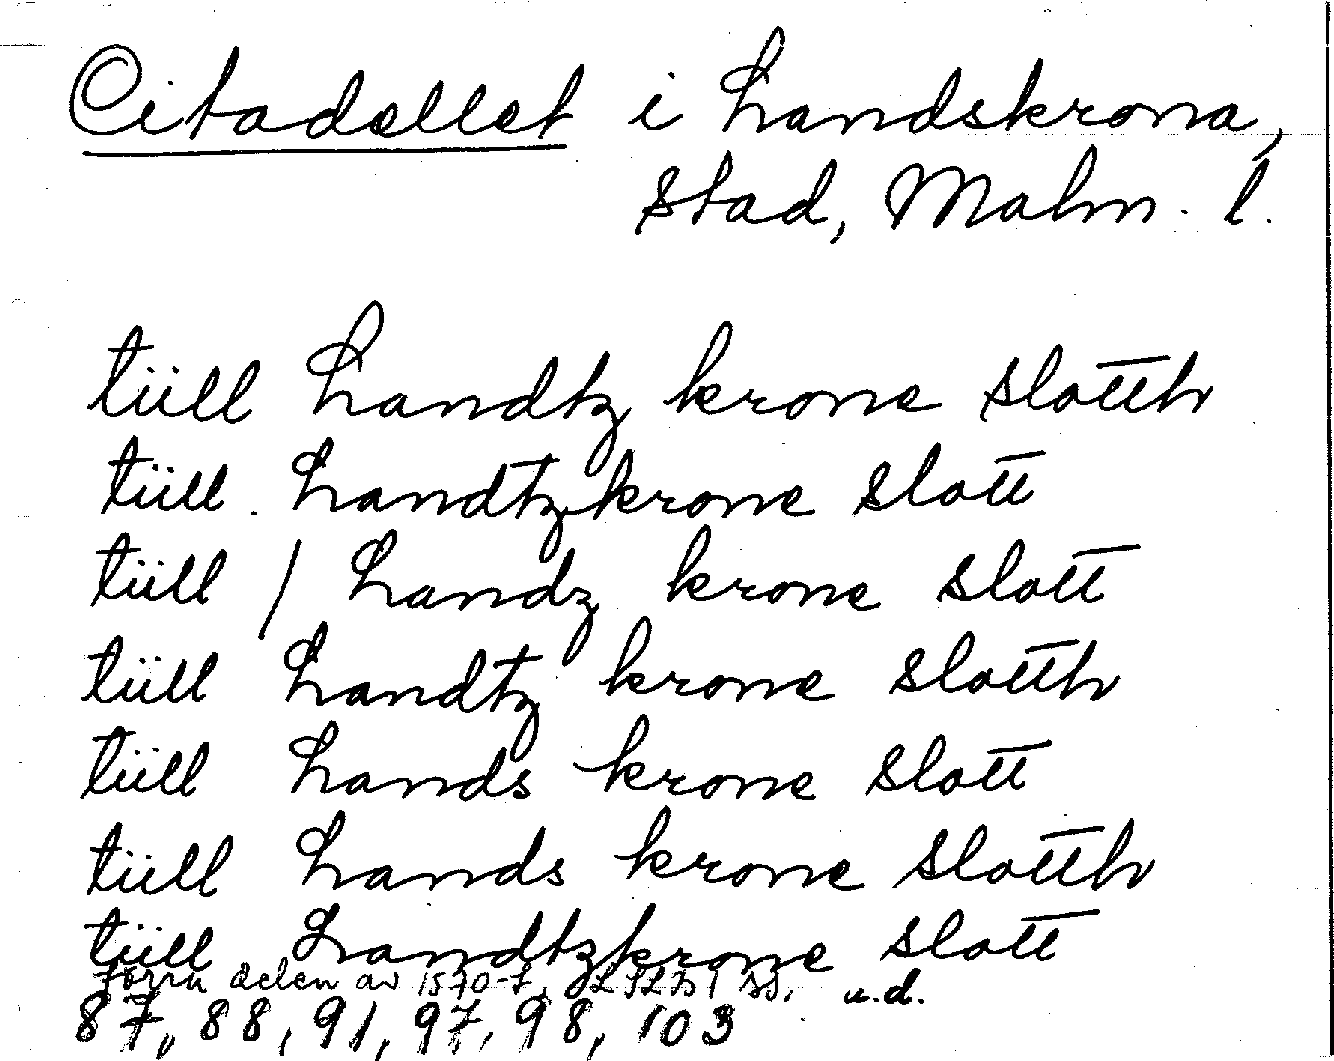 Citadellet i Landskrona,
stad, Malm. l.
tüll Landtz krone slotth
tüll. Landtzkrone slott
tüll / Landz krone slott
tüll Landtz krone slotth
tüll Lands krone slott
tüll Lands krone slotth
tüll Landtzkrone slott
Förra delen av 1570-t. u.d.
87, 88, 91, 97, 98, 103